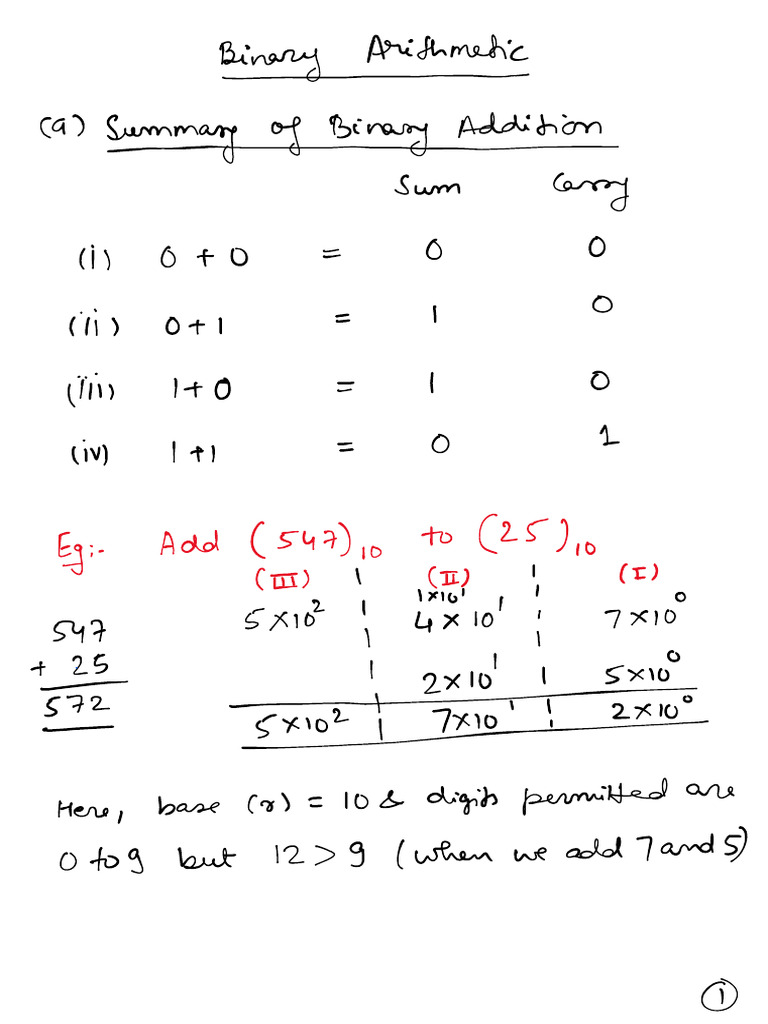 Binary Arithmetic
(a) Summary of Binary Addition
Sum Carry
(i) 0 + 0 = 0 0
(ii) 0 + 1 = 1 0
(iii) 1 + 0 = 1 0
(iv) 1 + 1 = 0 1
Eg:- Add (547)₁₀ to (25)₁₀
(III) (II) (I)
1×10¹
547 5×10² 4×10¹ 7×10⁰
+ 25 2×10¹ 5×10⁰
572 5×10² 7×10¹ 2×10⁰
Here, base (r) = 10 & digits permitted are
0 to 9 but 12 > 9 (when we add 7 and 5)
1